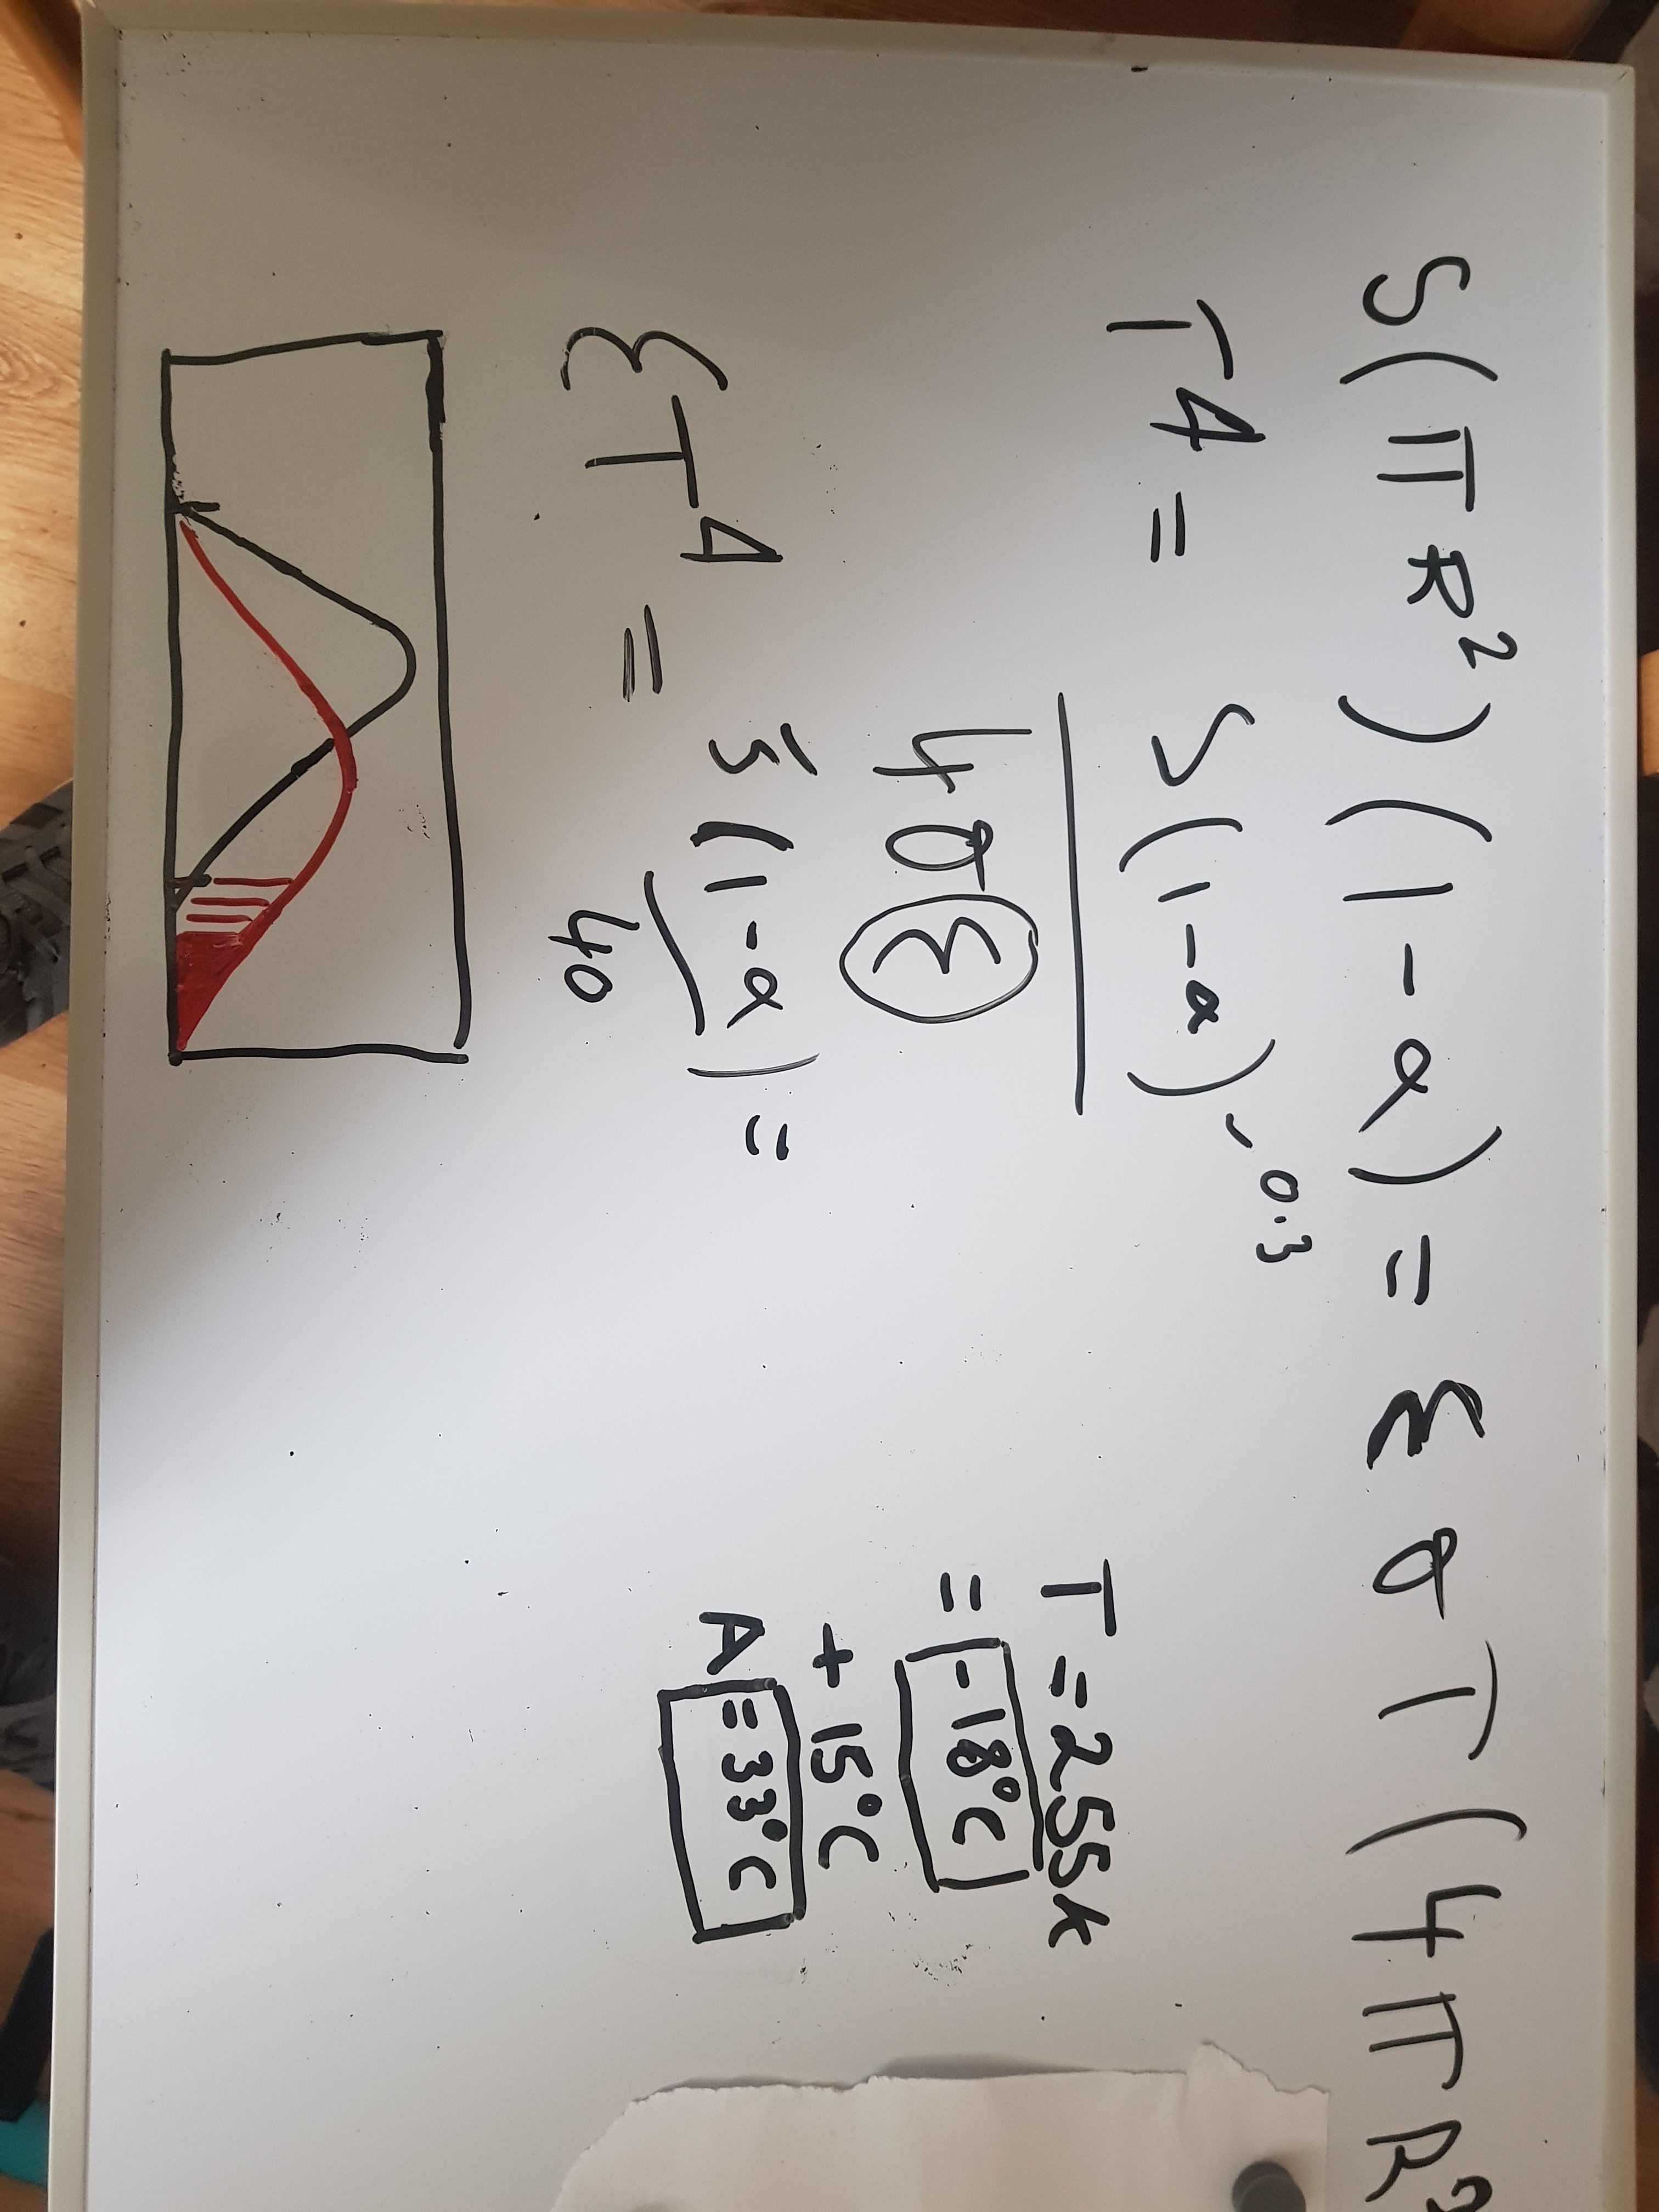 S(πR²)(1-α) = εσT(4πR²
T4 = S(1-α) - 0.3
4σε
εT4 = S(1-α) =
4σ
T = 255K
= -18°C
+ 15°C
Δ = 33°C